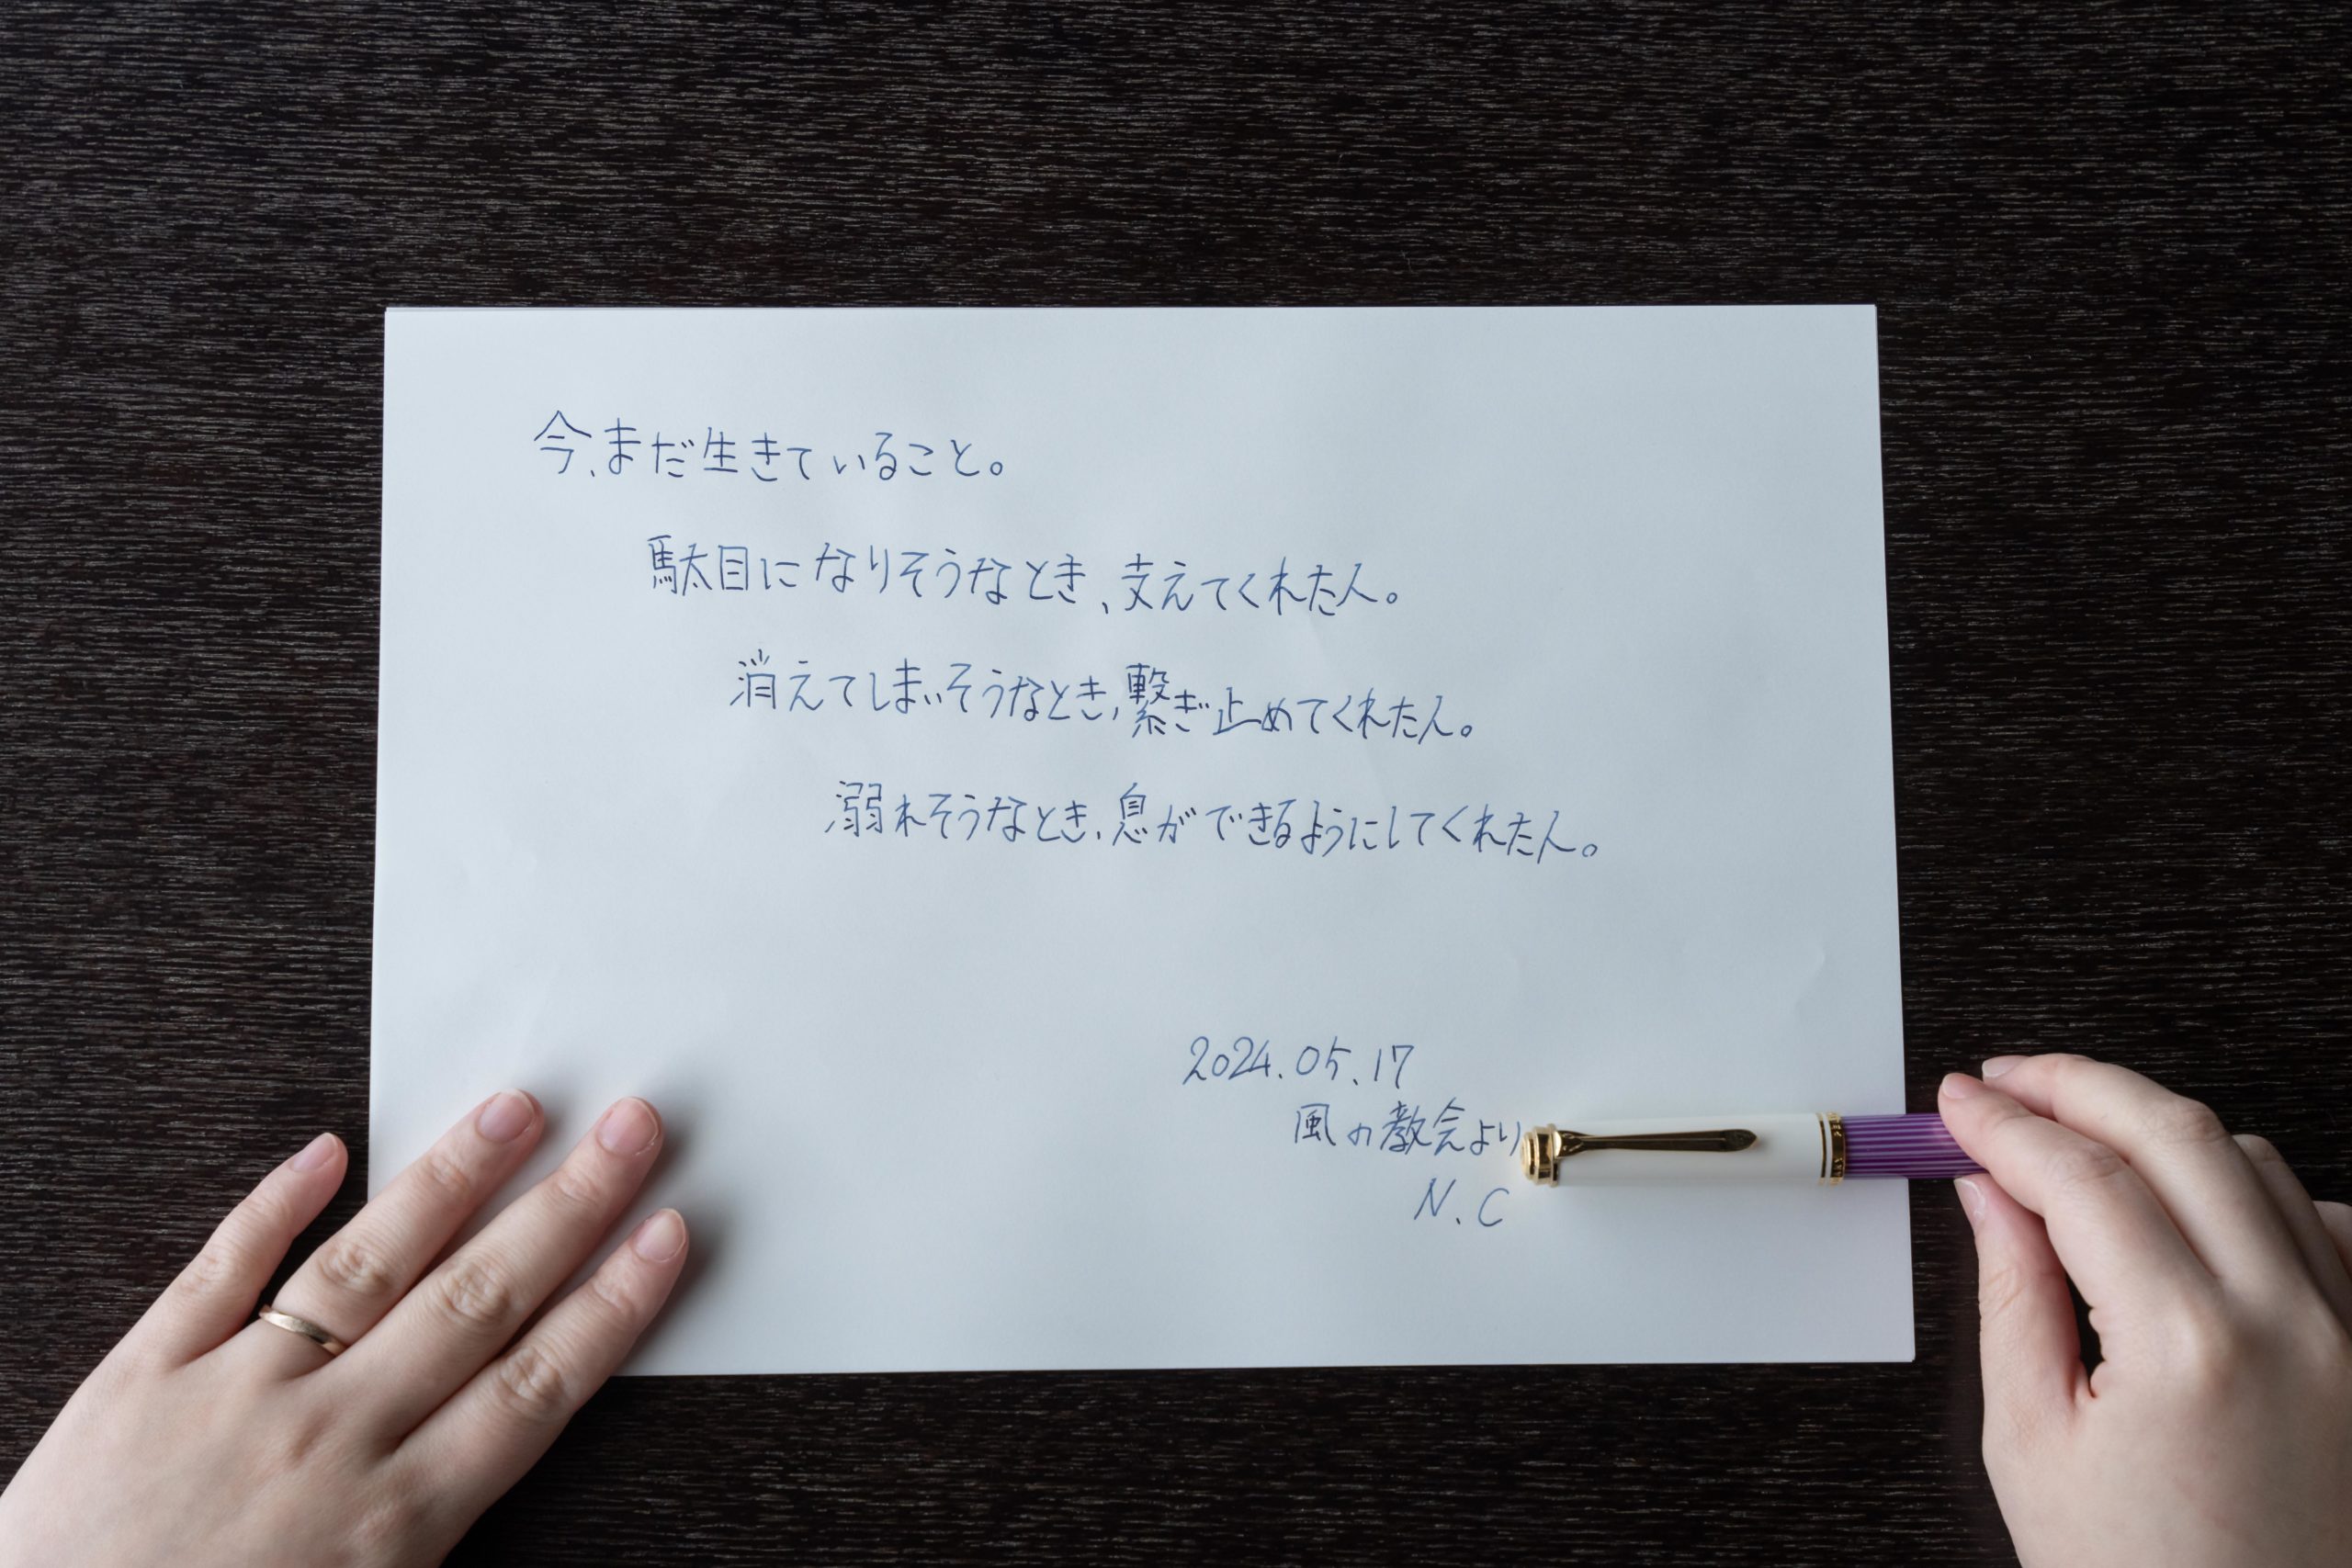 今、まだ生きていること。
駄目になりそうなとき、支えてくれた人。
消えてしまいそうなとき、繋ぎ止めてくれた人。
溺れそうなとき、息ができるようにしてくれた人。
2024.05.17
風の教会より
N.C